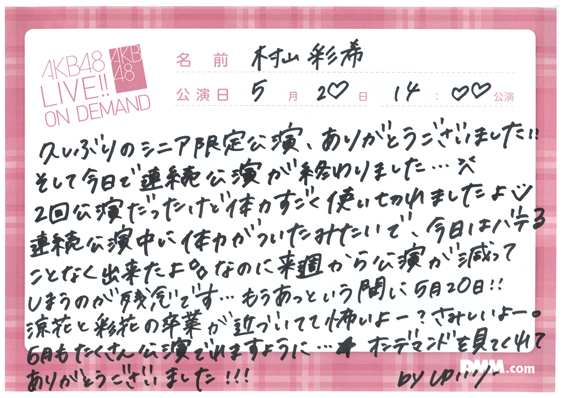 AKB48
LIVE!!
ON DEMAND
AKB
48
名前 村山彩希
公演日 5月20日 14:00公演
久しぶりのシニア限定公演、ありがとうございました!!
そして今日で連続公演が終わりました…×
2回公演だったけど体力すごく使い切れましたよ
連続公演中に体力がついたみたいで、今日はバテる
ことなく出来たよ。なのに来週から公演が減って
しまうのが残念です…もうあっという間に5月20日!!
涼花と彩花の卒業が近づいてて怖いよー?さみしいよー。
6月もたくさん公演でれますように…★ オンデマンドを見てくれて
ありがとうございました!!!
by ゆいりー
DMM.com